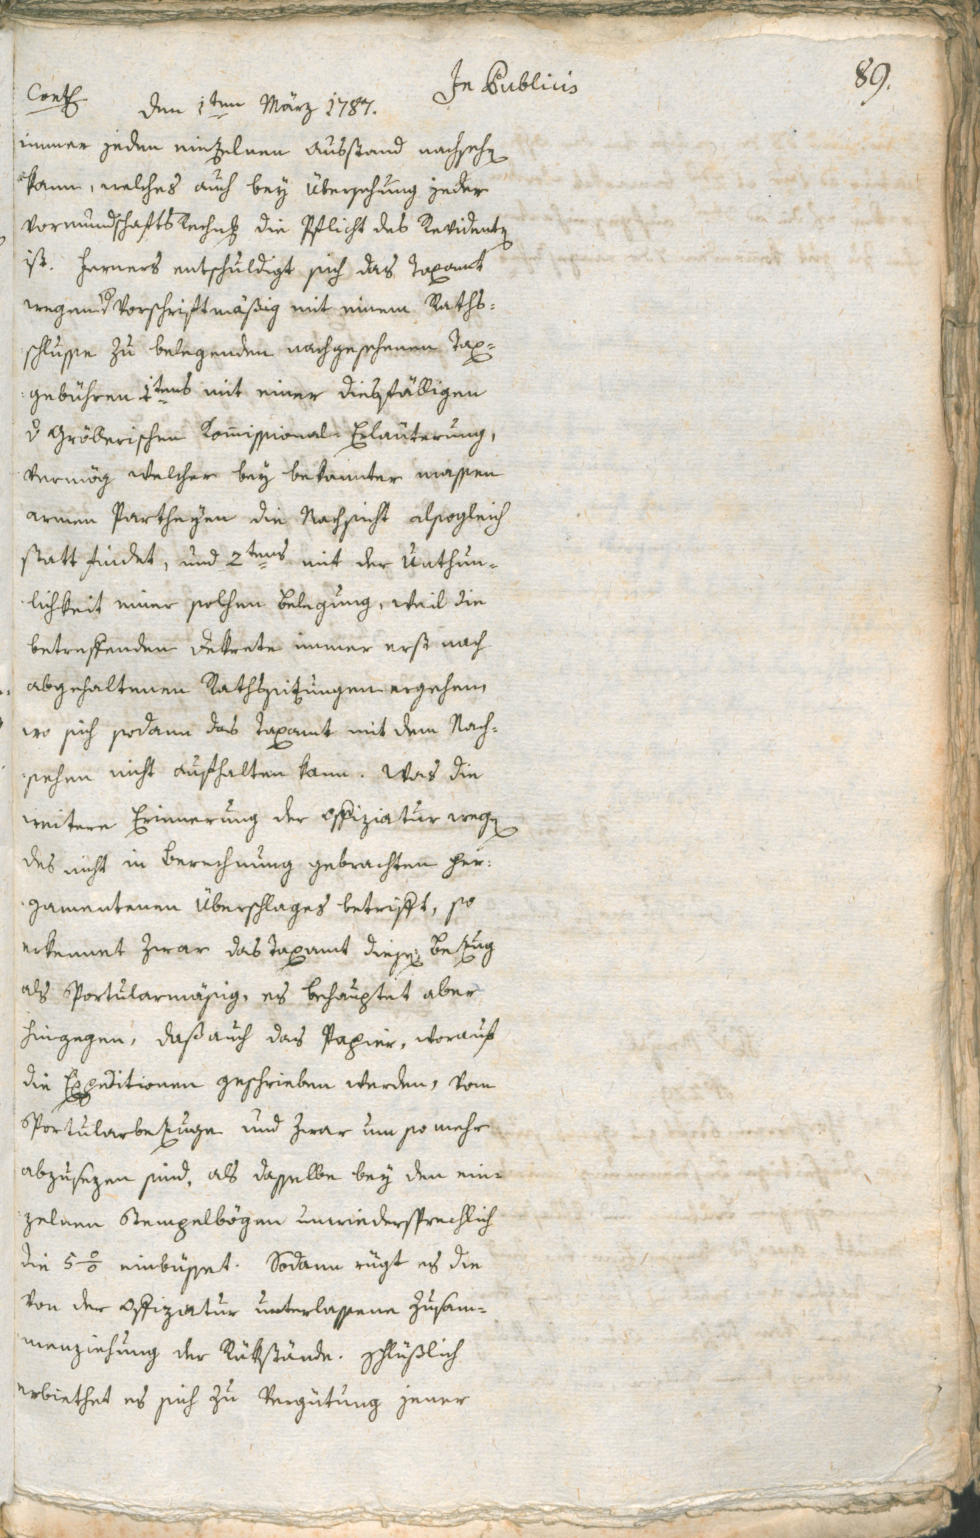 In Publicis
89.
Cont.
den 1ten März 1787.
immer jeden einzelnen Ausstand nachsehen
kann, welches auch bey Übersehung jeder
Vormundschafts Rechnung die Pflicht des Revidenten
ist. Ferners entschuldigt sich das Taxamt
wegen Vorschriftmäßig mit einem Raths-
schlusse zu belegenden nachgesehenen Tax-
gebühren 1tens mit einer diesfälligen
v Gröllerischen Kommissional-Erläuterung,
vermög welcher bey bekannter massen
armen Partheyen die Nachsicht alsogleich
statt findet, und 2tens mit der Unthun-
lichkeit einer solchen Belegung, weil die
betreffenden Dekrete immer erst nach
abgehaltenen Rathssitzungen ergehen,
wo sich sodann das Taxamt mit dem Nach-
sehen nicht aufhalten kann. Was die
weitere Erinnerung der Offiziatur wegen
des nicht in Berechnung gebrachten per-
gamentenen Überschlages betrifft, so
erkennet zwar das Taxamt diesen Bezug
als Sportularmäsig, es behauptet aber
hingegen, daß auch das Papier, worauf
die Expeditionen geschrieben werden, vom
Sportularbezuge und zwar um so mehr
abzusezen sind, als dasselbe bey den ein-
zelnen Stempelbögen unwiedersprechlich
die 5 0/0 einbüsset. Sodann rügt es die
von der Offiziatur unterlassene Zusam-
menziehung der Rükstände. Schlüßlich
erbiethet es sich zu Vergütung jener